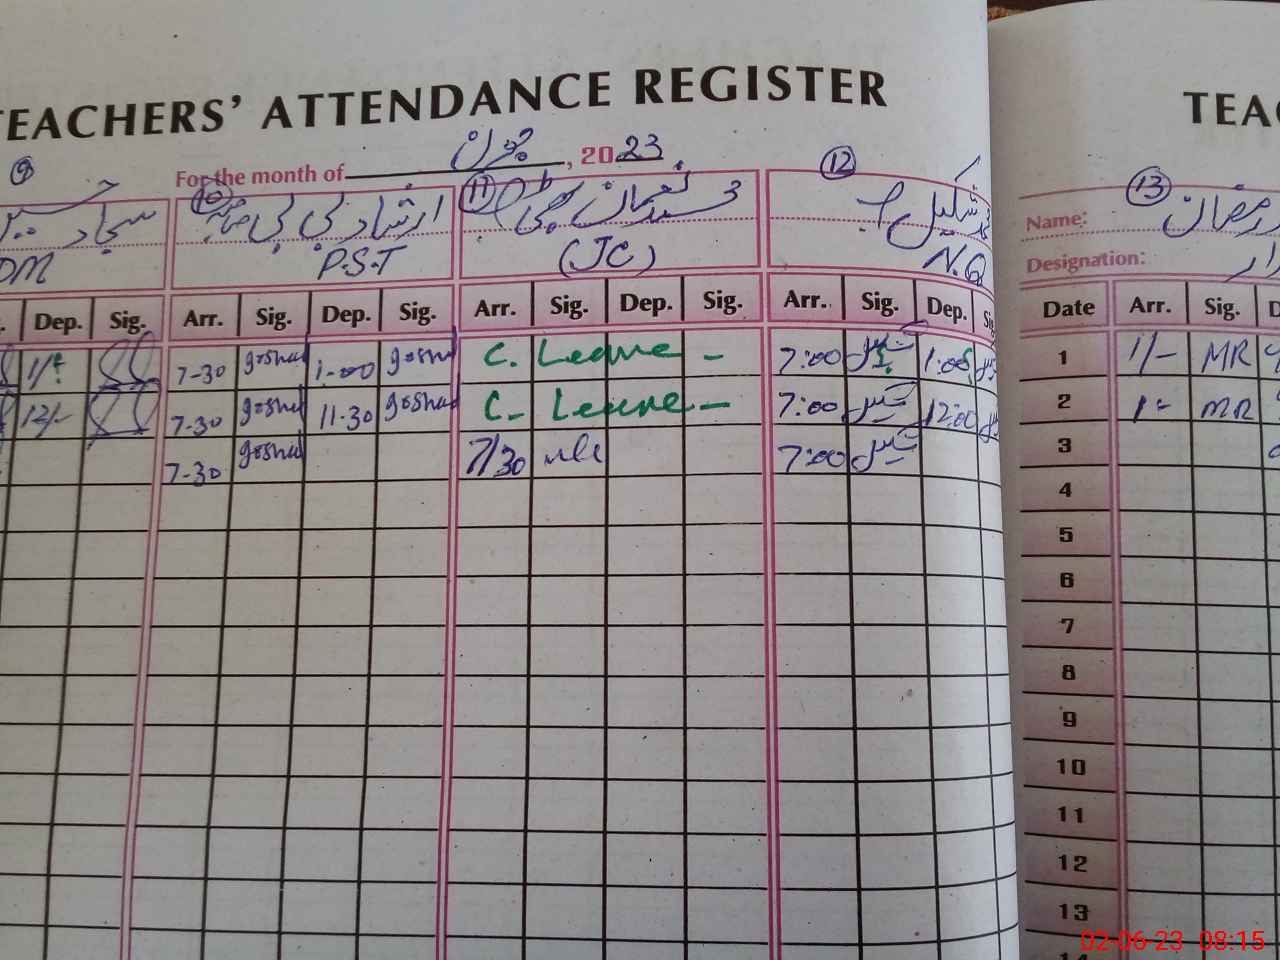 TEACHERS' ATTENDANCE REGISTER
For the month of جون, 2023
9 10 11 12
سجاد
ارشاد بی بی
محمد نعمان
محمد شکیل
DM P.S.T (JC) N.Q
Dep. Sig. Arr. Sig. Dep. Sig. Arr. Sig. Dep. Sig. Arr. Sig. Dep. Sig.
7-30 1-00 C. Leave - 7:00 1:00
12/- 7-30 11-30 C- Leave - 7:00 12:00
7-30 7/30 7:00
TEAC
13
Name: رمضان
Designation:
Date Arr. Sig. D
1 1/- MR
2 1- MR
3
4
5
6
7
8
9
10
11
12
13
14
02-06-23 08:15